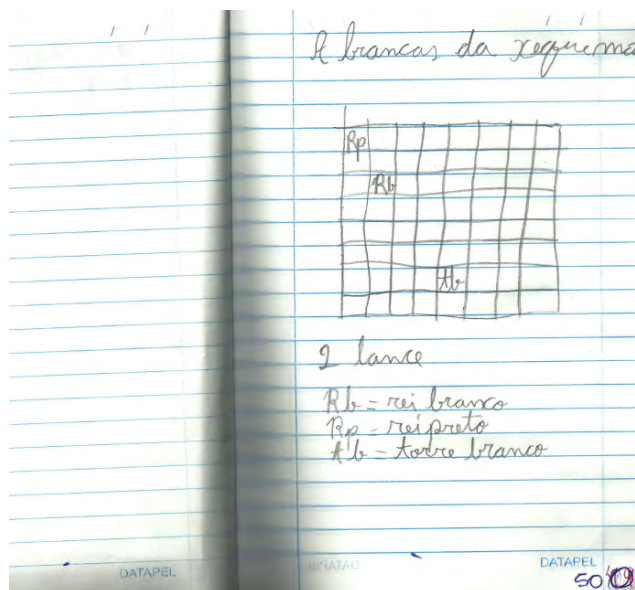 A brancas da xequema
Rp
Rb
tb
2 lance
Rb = rei branco
Rp - rei preto
tb = torre branco
DATAPEL
DATAPEL
50